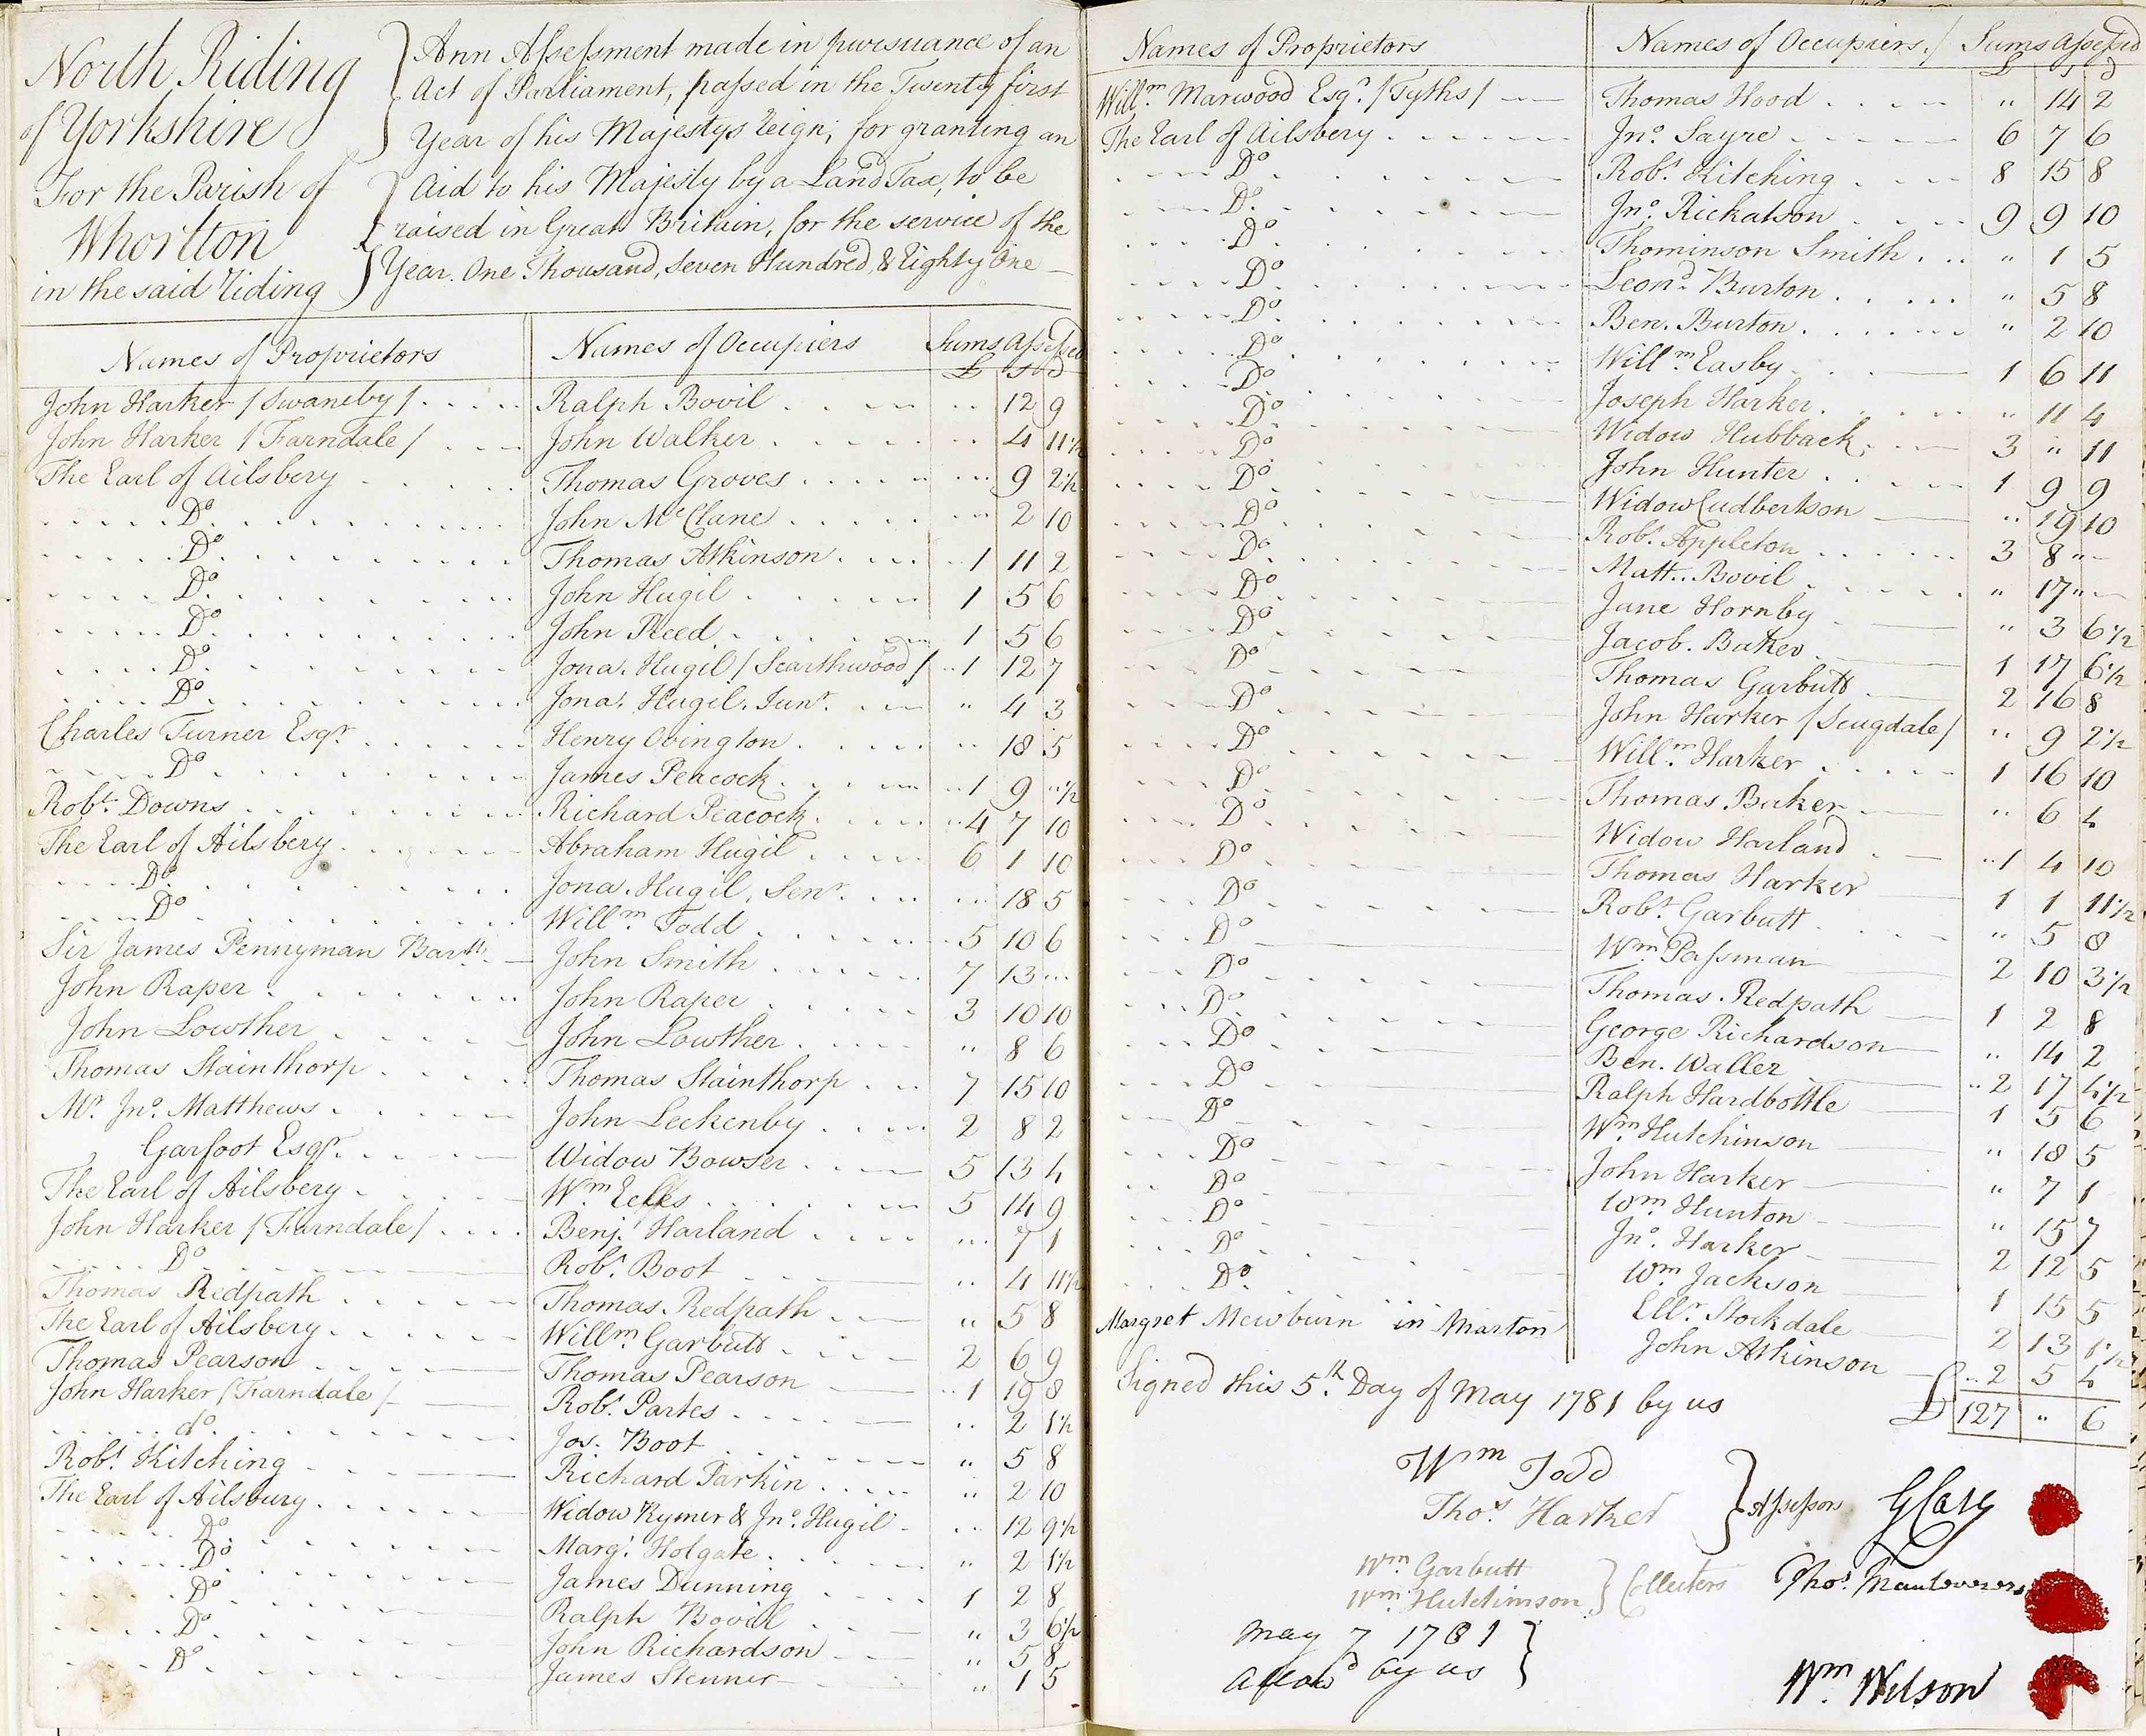 North Riding
of Yorkshire
For the Parish of
Whorlton
in the said Riding
Ann Assessment made in pursuance of an
Act of Parliament, passed in the Twenty first
Year of his Majestys Reign; for granting an
Aid to his Majesty by a Land Tax, to be
raised in Great Britain, for the service of the
Year. One Thousand, Seven Hundred, & Eighty One
Names of Proprietors Names of Occupiers Sums Assessed
£ s d
John Harker / Swaneby / Ralph Bovil 12 9
John Harker / Farndale / John Walker 4 11½
The Earl of Ailsbery Thomas Groves 9 2½
Do John McClane 2 10
Do Thomas Atkinson 1 11 2
Do John Hugil 1 5 6
Do John Reed 1 5 6
Do Jona. Hugil / Scarthwood / 1 12 7
Do Jona. Hugil. Junr. " 4 3
Charles Turner Esqr. Henry Ovington 18 5
Do James Peacock 1 9 "½
Robt. Downs Richard Peacock 4 7 10
The Earl of Ailsbery Abraham Hugil 6 1 10
Do Jona. Hugil, Senr. 18 5
Do Willm. Todd 5 10 6
Sir James Pennyman Bart. John Smith 7 13 ...
John Raper John Raper 3 10 10
John Lowther John Lowther " 8 6
Thomas Stainthorp Thomas Stainthorp 7 15 10
Mr. Jno. Matthews John Leckenby 2 8 2
Garfoot Esqr. Widow Bowser 5 13 4
The Earl of Ailsbery Wm. Eeles 5 14 9
John Harker / Farndale / Benj. Harland 7 1
Do Robt. Boot 4 11½
Thomas Redpath Thomas Redpath " 5 8
The Earl of Ailsbery Willm. Garbutt 2 6 9
Thomas Pearson Thomas Pearson 1 19 8
John Harker / Farndale / Robt. Partes 2 1½
do. Jos. Boot " 5 8
Robt. Kitching Richard Parkin " 2 10
The Earl of Ailsbury Widow Rymer & Jno. Hugil 12 9½
Do Margt. Holgate " 2 1½
Do James Dunning 1 2 8
Do Ralph Bovill " 3 6½
Do John Richardson " 5 8
Do James Stenner " 1 5
Names of Proprietors Names of Occupiers / Sums Assessed
£ s d
Willm. Marwood Esqr. / Tyths / Thomas Hood " 14 2
The Earl of Ailsbery Jno. Sayre 6 7 6
Do Robt. Kitching 8 15 8
Do Jno. Rickatson 9 9 10
Do Thominson Smith " 1 5
Do Leond. Burton " 5 8
Do Ben. Burton " 2 10
Do Willm. Easby 1 6 11
Do Joseph Harker " 11 4
Do Widow Hubback 3 " 11
Do John Hunter 1 9 9
Do Widow Cudbertson " 19 10
Do Robt. Appleton 3 8 "
Do Matt. Bovil " 17 "
Do Jane Hornby " 3 6½
Do Jacob. Baker 1 17 6½
Do Thomas Garbutt 2 16 8
Do John Harker / Scugdale / " 9 2½
Do Willm. Harker 1 16 10
Do Thomas Baker " 6 4
Do Widow Harland 1 4 10
Do Thomas Harker 1 1 11½
Do Robt. Garbutt " 5 8
Do Wm. Passman 2 10 3½
Do Thomas. Redpath 1 2 8
Do George Richardson " 14 2
Do Ben. Waller 2 17 4½
Do Ralph Hardbottle 1 5 6
Do Wm. Hutchinson " 18 5
Do John Harker " 7 1
Do Wm. Hunton " 15 7
Do Jno. Harker 2 12 5
Do Wm. Jackson 1 15 5
Do Ellr. Stockdale 2 13 1½
Margret Mewburn in Marton John Atkinson 2 5 4
£ 127 " 6
Signed this 5th. Day of May 1781 by us
Wm Todd
Thos. Harker
Assessors
Wm. Garbutt
Wm. Hutchinson
Collecters
May 7 1781
allowd by us
G Cary
Thos.
Wm. Wilson